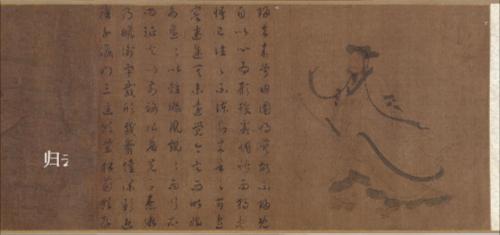 歸去來兮田園將蕪胡不歸既
自以心為形役奚惆悵而獨悲
悟已往之不諫知來者之可追
實迷途其未遠覺今是而昨非
舟遙遙以輕颺風飄飄而吹衣
問征夫以前路恨晨光之熹微
乃瞻衡宇載欣載奔僮僕歡迎
稚子候門三徑就荒松菊猶存
归